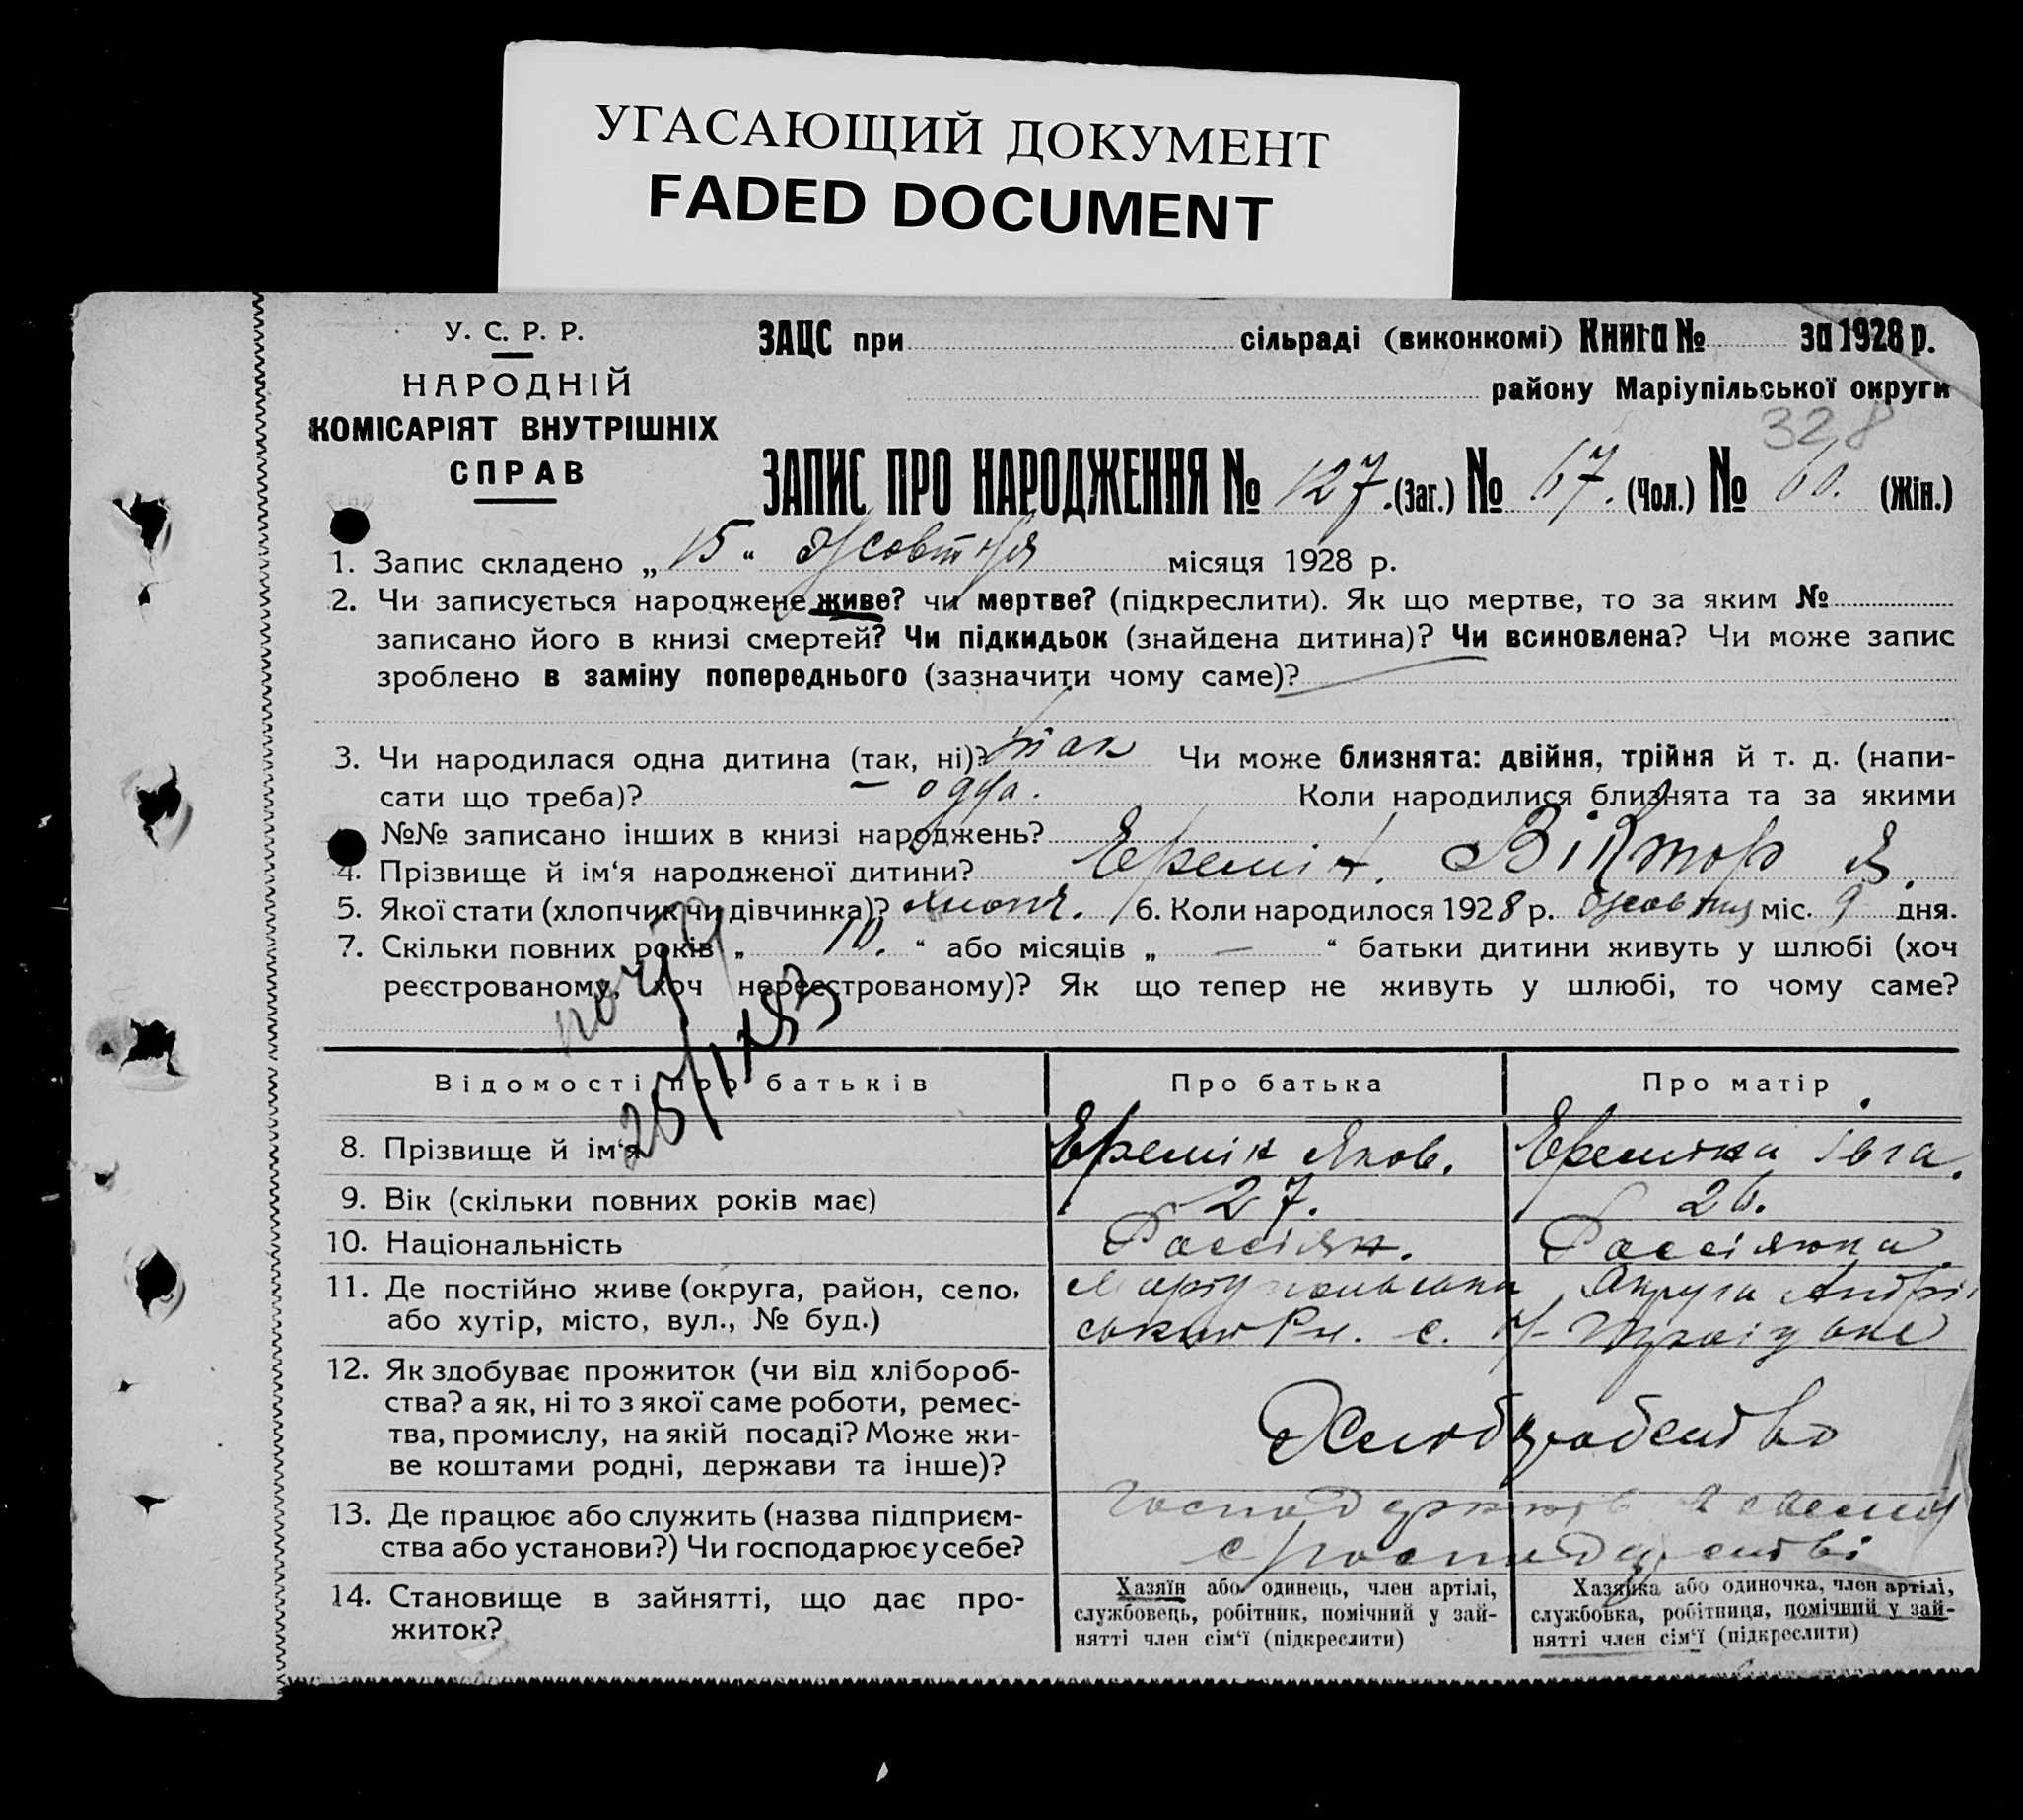 УГАСАЮЩИЙ ДОКУМЕНТ
FADED DOCUMENT
У. С. Р. Р.
НАРОДНІЙ
КОМІСАРІЯТ ВНУТРІШНІХ
СПРАВ
ЗАЦС при сільраді (виконкомі) Книга № за 1928 р.
району Маріупільської округи
328
ЗАПИС ПРО НАРОДЖЕННЯ № 127. (Заг.) № 67. (Чол.) № 60. (Жін.)
1. Запис складено „ 15 “ Жовтня місяця 1928 р.
2. Чи записується народжене живе? чи мертве? (підкреслити). Як що мертве, то за яким №
записано його в книзі смертей? Чи підкидьок (знайдена дитина)? Чи всиновлена? Чи може запис
зроблено в заміну попереднього (зазначити чому саме)?
3. Чи народилася одна дитина (так, ні)? так Чи може близнята: двійня, трійня й т. д. (напи-
сати що треба)? одна. Коли народилися близнята та за якими
№№ записано інших в книзі народжень?
4. Прізвище й ім‘я народженої дитини? Еремін. Віктор Я.
5. Якої стати (хлопчик чи дівчинка)? хлопч. 6. Коли народилося 1928 р. Жовтня міс. 9 дня.
7. Скільки повних років „ 10. “ або місяців „ — “ батьки дитини живуть у шлюбі (хоч
реєстрованому, хоч нереєстрованому)? Як що тепер не живуть у шлюбі, то чому саме?
Відомості про батьків Про батька Про матір
8. Прізвище й ім‘я Еремін Яков. Ереміна Івга.
9. Вік (скільки повних років має) 27. 26.
10. Національність Россіян. Россіянка
11. Де постійно живе (округа, район, село,
або хутір, місто, вул., № буд.) Маріупольська Округа
12. Як здобуває прожиток (чи від хлібороб-
ства? а як, ні то з якої саме роботи, ремес-
тва, промислу, на якій посаді? Може жи-
ве коштами родні, держави та інше)?
Хліборобство
13. Де працює або служить (назва підприєм-
ства або установи?) Чи господарює у себе?
14. Становище в зайнятті, що дає про-
житок?
Хазяїн або одинець, член артілі,
службовець, робітник, помічний у зай-
нятті член сім‘ї (підкреслити)
Хазяйка або одиночка, член артілі,
службовка, робітниця, помічний у зай-
нятті член сім‘ї (підкреслити)